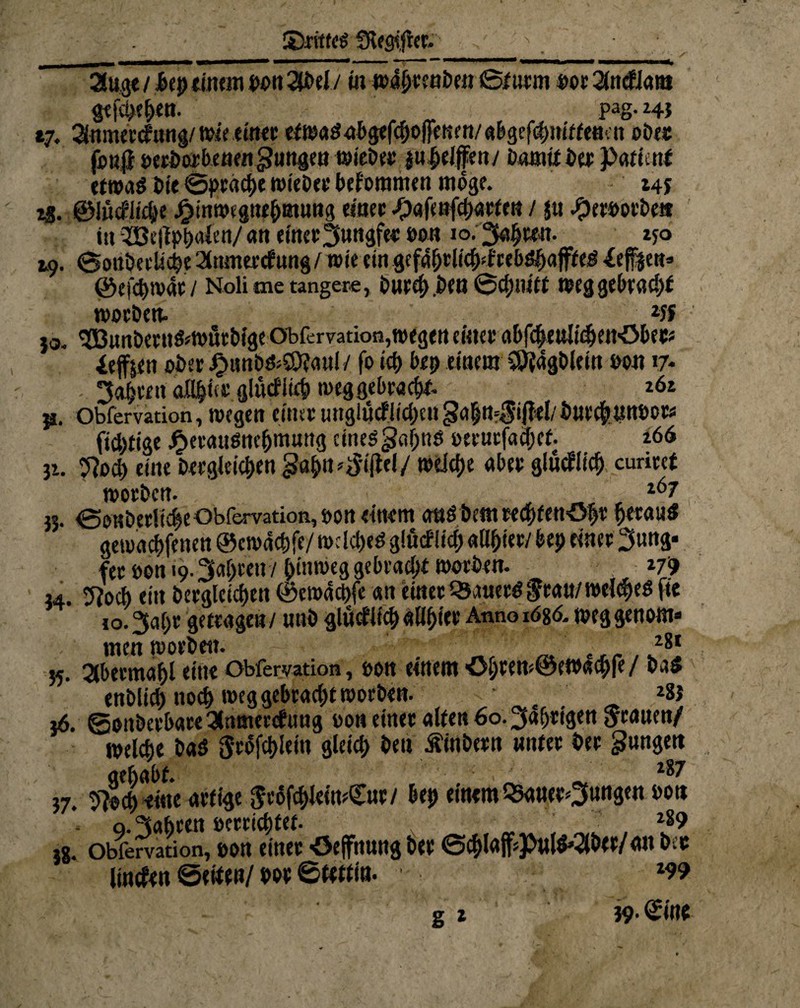 Drittes Register.
Auge / bey einem von Adel / in währenden Sturm vor Ancklam
geschehen. pag. 243
27. Anmerckung / wie einer etwas abgeschossenen / abgeschnittenen oder
sonst verdorbenen Zungen wieder zu helffen / damit der Patient
etwas die Sprache wieder bekommen möge. 245
28. Glückliche Hinwegnehmung einer Hasenscharten / zu Hervorden
in Westphalen / an einer Jungfer von 10. Jahren. 250
29. Sonderliche Anmerckung / wie ein gefährlich-krebshafftes Leffzen-
Geschwär / Noli me tangere, durch den Schnitt weg gebracht
worden. 255
30. Wunderns-würdige Observation, wegen einer abscheulichen Ober-
Leffzen oder Hunds-Maul / so ich bey einem Mägdlein von 17.
Jahren allhier glücklich weg gebracht. 262
31. Observation, wegen einer unglücklichen Zahn-Fistel / durch unvor-
sichtige Herausnehmung eines Zahns verursachet. 266
32. Noch eine dergleichen Zahn-Fistel / welche aber glücklich curiret
worden. 267
33. Sonderliche Observation, von einem aus dem rechten Ohr heraus
gewachsenen Gewächse / welches glücklich allhier / bey einer Jung-
fer von 19. Jahren / hinweg gebracht worden. 279
34. Noch ein dergleichen Gewächse an einer Bauers Frau / welches sie
10. Jahr getragen / und glücklich allhier Anno 1686. weg genom-
men worden. 281
35. Abermahl eine Observation, von einem Ohren-Gewächse / das
endlich noch weg gebracht worden. 283
36. Sonderbare Anmerckung von einer alten 60. Jährigen Frauen /
welche das Fröschlein gleich den Kindern unter der Zungen
gehabt. 287
37. Noch eine artige Fröschlein-Cur / bey einem Bauer-Jungen von
9. Jahren verrichtet. 289
38. Observation, von einer Oeffnung der Schlaff-Puls-Ader / an der
lincken Seiten / vor Stettin. 299
g 2 39. Eine